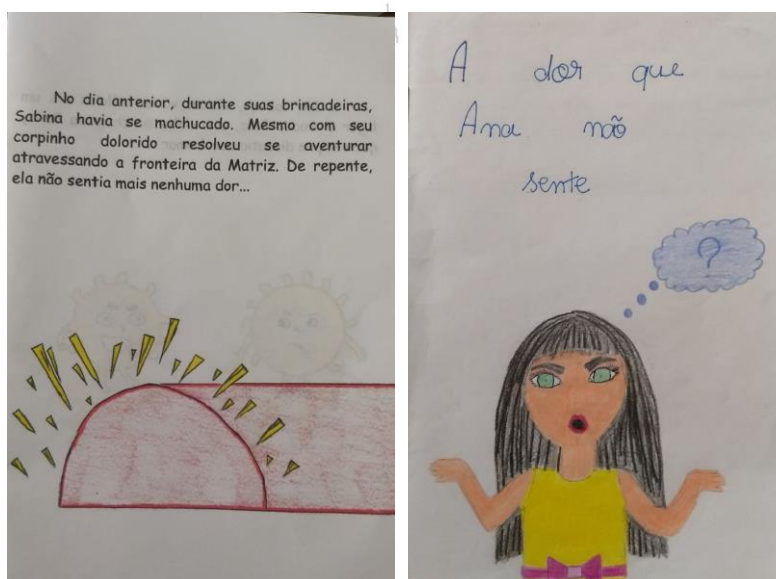 No dia anterior, durante suas brincadeiras,
Sabina havia se machucado. Mesmo com seu
corpinho dolorido resolveu se aventurar
atravessando a fronteira da Matriz. De repente,
ela não sentia mais nenhuma dor...
A dor que
Ana não
sente
?